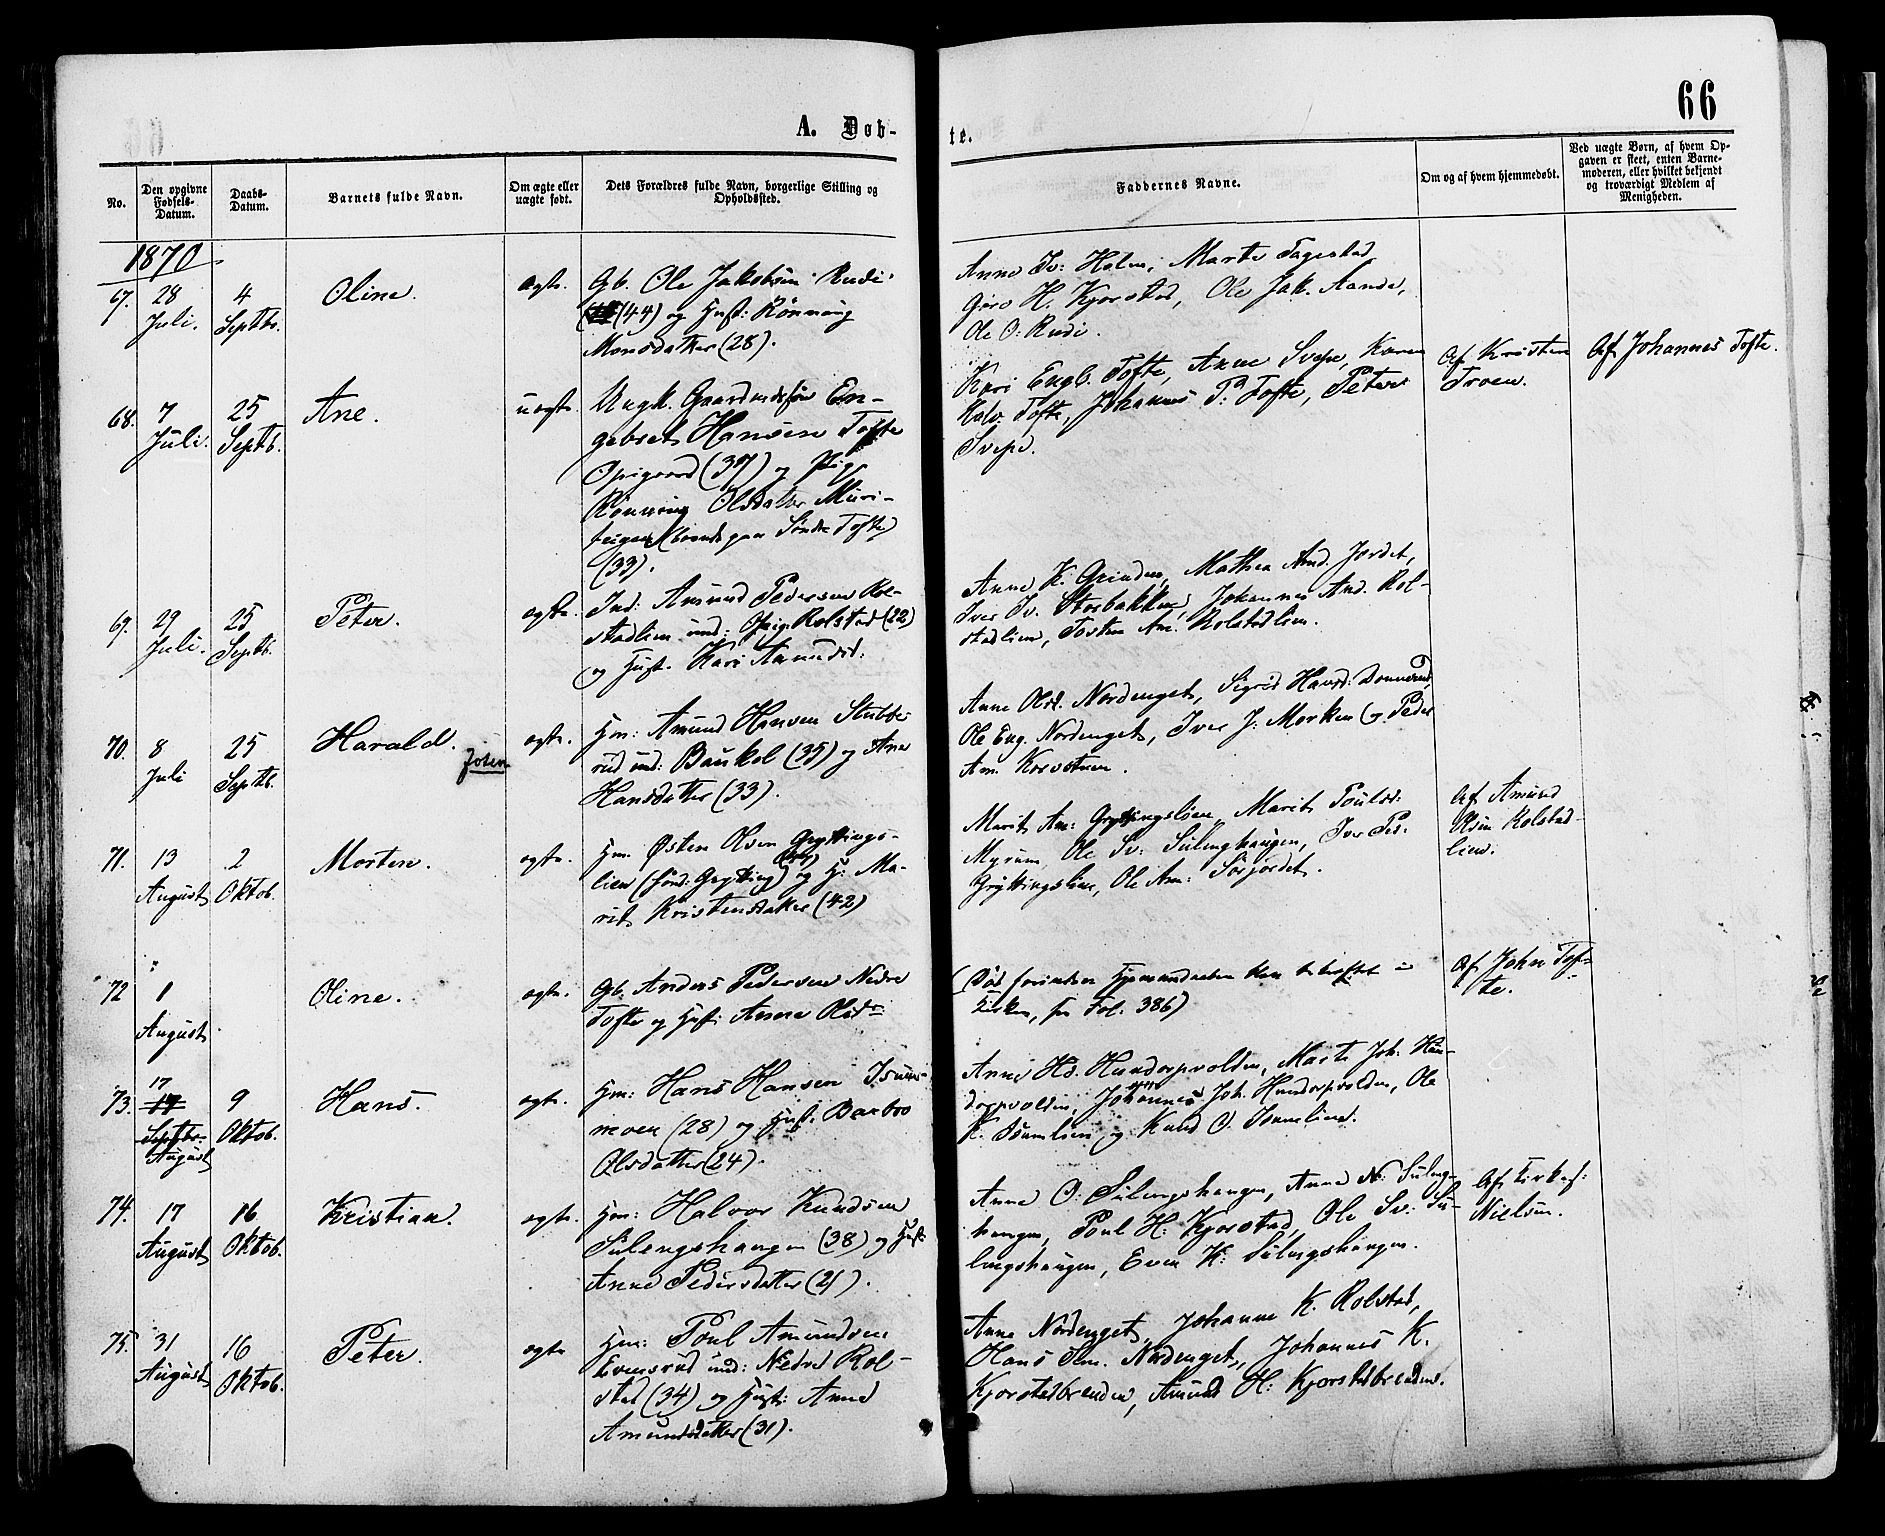 66
A. Døb-
te.
No.
Den opgivne Fødsels-Datum.
Daabs-Datum.
Barnets fulde Navn.
Om ægte eller uægte født.
Dets Forældres fulde Navn, borgerlige Stilling og Opholdssted.
Faddernes Navne.
Om og af hvem hjemmedøbt.
Ved uægte Børn, af hvem Opgaven er skeet, enten Barnemoderen, eller hvilket bekjendt og troværdigt Medlem af Menigheden.
1870
67.
28 Juli.
4 Septbr.
Oline.
ægte.
Gb. Ole Jakobsen Rudi
(44) og Hust: Rønnoug
Monsdatter (28).
Anne Iv: Holm, Marte Fagestad
Guro H. Kjorstad, Ole Jak. Aande,
Ole O: Rudi.
68.
7 Juli.
25 Septb.
Ane.
uægte.
Ungk. Gaardmandssøn En-
gebret Hansen Tofte
Opigaard (37) og Pige
Rønnoug Olsdatter Muri-
(33).
Kari Engb. Tofte, Anne Svepe, Karen
Halv. Tofte, Johannes P. Tofte, Peter
Svepe.
Af Kristen
Troen.
Af Johannes Tofte.
69.
29 Juli.
25 Septb.
Peter.
ægte.
Ind: Amund Pedersen Rol-
stadlien und: Opig. Rolstad (22)
og Hust. Kari Amundsd.
Anne K. Grinden, Mathea And. Jordet,
Iver Iv. Storbakken, Johannes And. Rol-
stadlien, Torsten Am. Rolstadlien.
70.
8 Juli
25 Septb.
Harald.
ægte.
Hm: Amund Hansen Stubbe-
rud und: Baukol (35) og Ane
Hansdatter (33).
Anne Olsd. Nordenget, Sigrid Hansd:
Ole Eng. Nordenget, Iver J. Morken og Peder
Am. Korvstuen.
71.
13 August
2 Oktob.
Morten.
ægte.
Hm. Østen Olsen Gryttings-
lien (Sønd: Grytting) og H: Ma-
rit Kristensdatter (42)
Marit Am: Gryttingslien, Marit Poulsd:
Myrum, Ole Sv: Sulenghaugen, Iver Ped.
Gryttingslien, Ole Am: Sørjordet.
Af Amund
Olsen Rolstad-
lien.
72
1 August
Oline.
ægte.
Gb. Anders Pedersen Nedre
Tofte og Hust: Anne Olsdr
(Død forinden Hjemmedaaben kan bekræftet i
Kirken, se Fol. 386)
Af John Tof-
te.
73.
17 August
9 Oktob.
Hans.
ægte.
Hm: Hans Hansen Isum-
moen (28) og Hust. Barbro
Olsdatter (24).
Anne Hs. Hundorpvolden, Marte Joh. Hun-
dorpvolden, Johannes Joh. Hundorpvolden, Ole
K. Isumlien og Knud O. Isumlien.
74.
17 August
16 Oktob.
Kristian.
ægte.
Hm: Halvor Knudsen
Sulengshaugen (38) og Hust:
Anne Pedersdatter (21).
Anne O: Sulengshaugen, Anne N: Suleng-
haugen, Poul H: Kjorstad, Ole Sv: Su-
lengshaugen, Even K: Sulengshaugen.
Af Kirkes:
Nielsen.
75.
31 August
16 Oktob.
Peter.
ægte
Hm: Poul Amundsen
Evensrud und: Nedre Rol-
stad (34) og Hust: Anne
Amundsdatter (31).
Anne Nordenget, Johanne K. Rolstad,
Hans Sim. Nordenget, Johannes K.
Kjorstadbrenden, Amund H: Kjorstadbrenden.